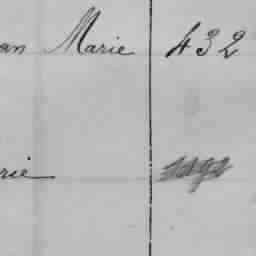 an Marie 432
rie